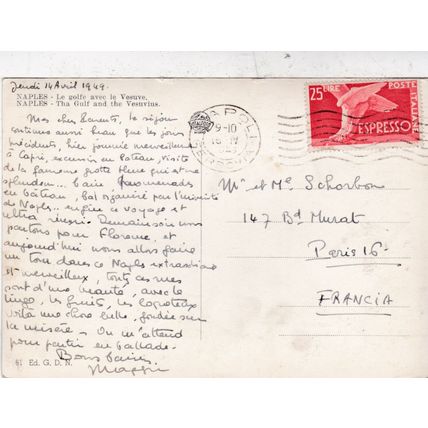 Jeudi 14 Avril 1949.
NAPLES - Le golfe avec le Vesuve.
NAPLES - Tha Gulf and the Vesuvius.
Mes chers parents, le séjour
continue aussi beau que les jours
précédents, hier journée merveilleuse
à Capri, excursion en bateau, visite
de la fameuse grotte bleue qui est une
splendeur... bains promenades
en bâteau, bal organisé par l'université
de Naples... enfin ce voyage est
ultra réussi. Demain soir nous
partons pour Florence, et
aujourd'hui nous allons faire
un tour dans ce Naples extraordinaire
et merveilleux, toutes ces rues
sont d'une beauté, avec le
linge, les fruits, les
voilà une chose belle, fondée sur
la misère. On m'attend
pour partir en ballade.
Bons baisers
61 Ed. G. D. N.
NAPOLI
9-10
25 LIRE
POSTE ITALIANE
ESPRESSO
Mr et Me Schorbon
147 Bd Murat
Paris 16e
FRANCIA